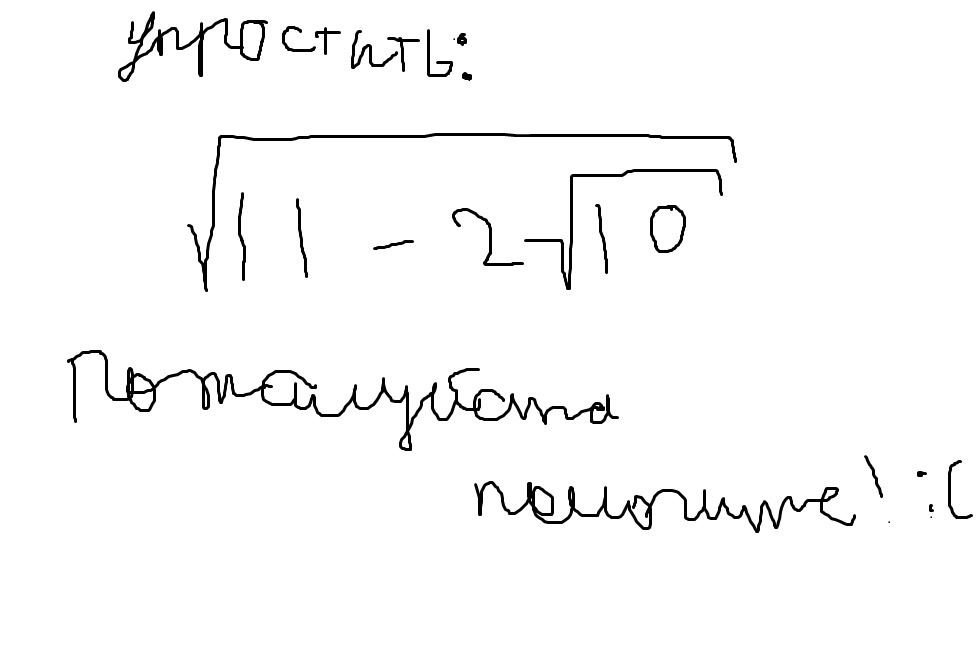 упростить:
√(11 - 2√10)
Пожалуйста
помогите! :(